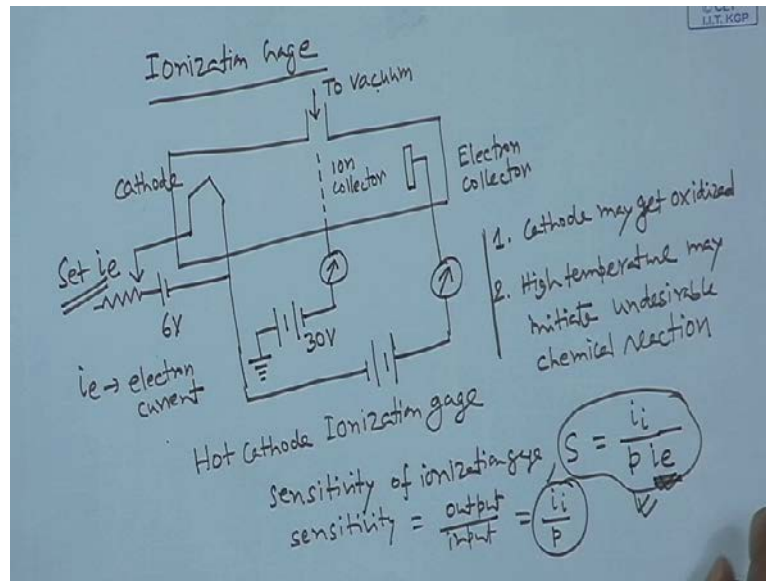 I.I.T. KGP
Ionization Gage
To vacuum
Cathode
ion
collector
Electron
collector
Set ie
6V
30V
ie → electron
current
1. Cathode may get oxidized
2. High temperature may
initiate undesirable
chemical reaction
Hot Cathode Ionization gage
sensitivity of ionization gage, S = ii / p ie
sensitivity = output / input = ii / p